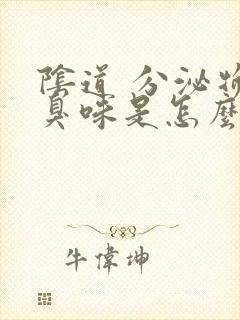 陰道 分泌物
臭味是怎麼
牛偉坤